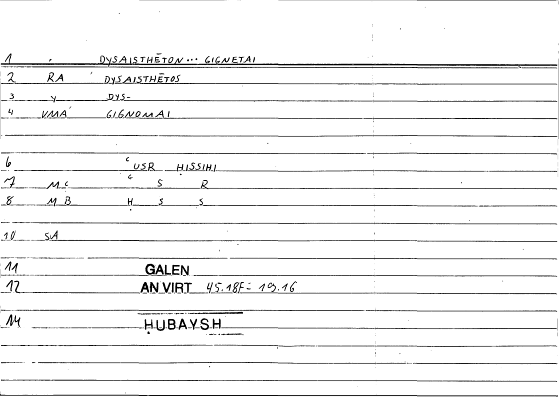 1 ʿ DYSAISTHĒTON··· GIGNETAI
2 RA ʾ DYSAISTHĒTOS
3 y DYS-
4 VMAʾ GIGNOMAI
6 ʿUSR ḤISSIHI
7 MC ʿ S R
8 MB Ḥ S S
10 SA
11 GALEN
12 AN VIRT 45.18F = 19.16
14 ḤUBAYSH